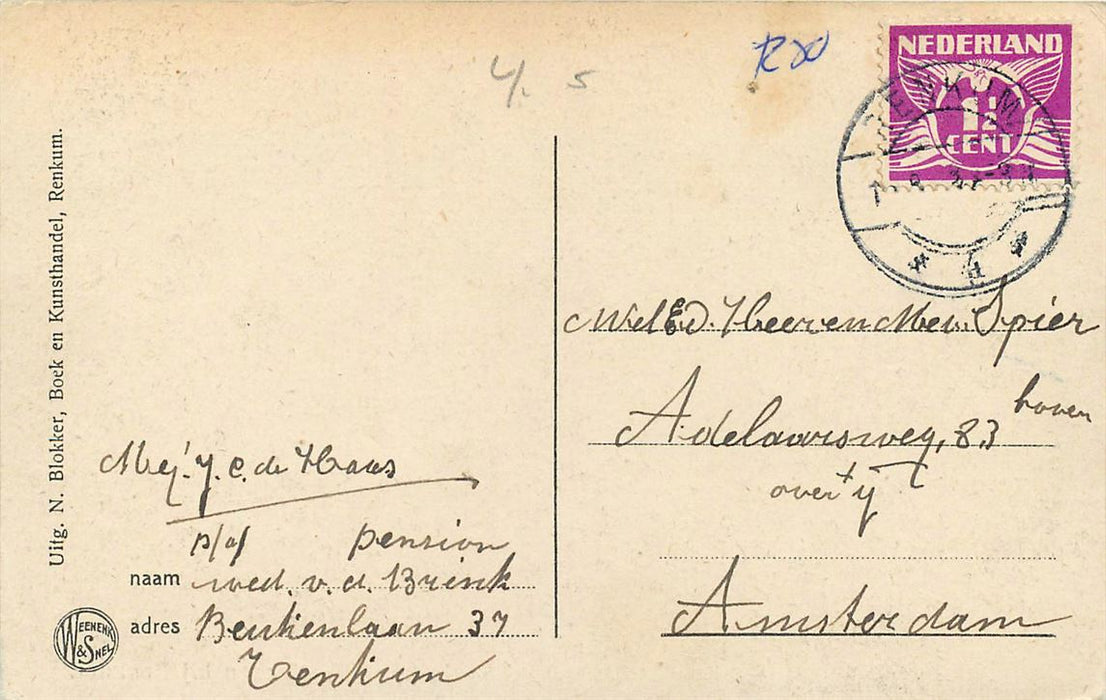 NEDERLAND
1½
CENT
RENKUM
Uitg. N. Blokker, Boek en Kunsthandel, Renkum.
Mej. J. C. de Haas
p/a/ pension
naam wed. v. d. Brink
adres Beukenlaan 37
Renkum
WEENENK & SNEL
WelEd. Heer en Mev. Spier
Adelaarsweg, 83 boven
over 't y
Amsterdam